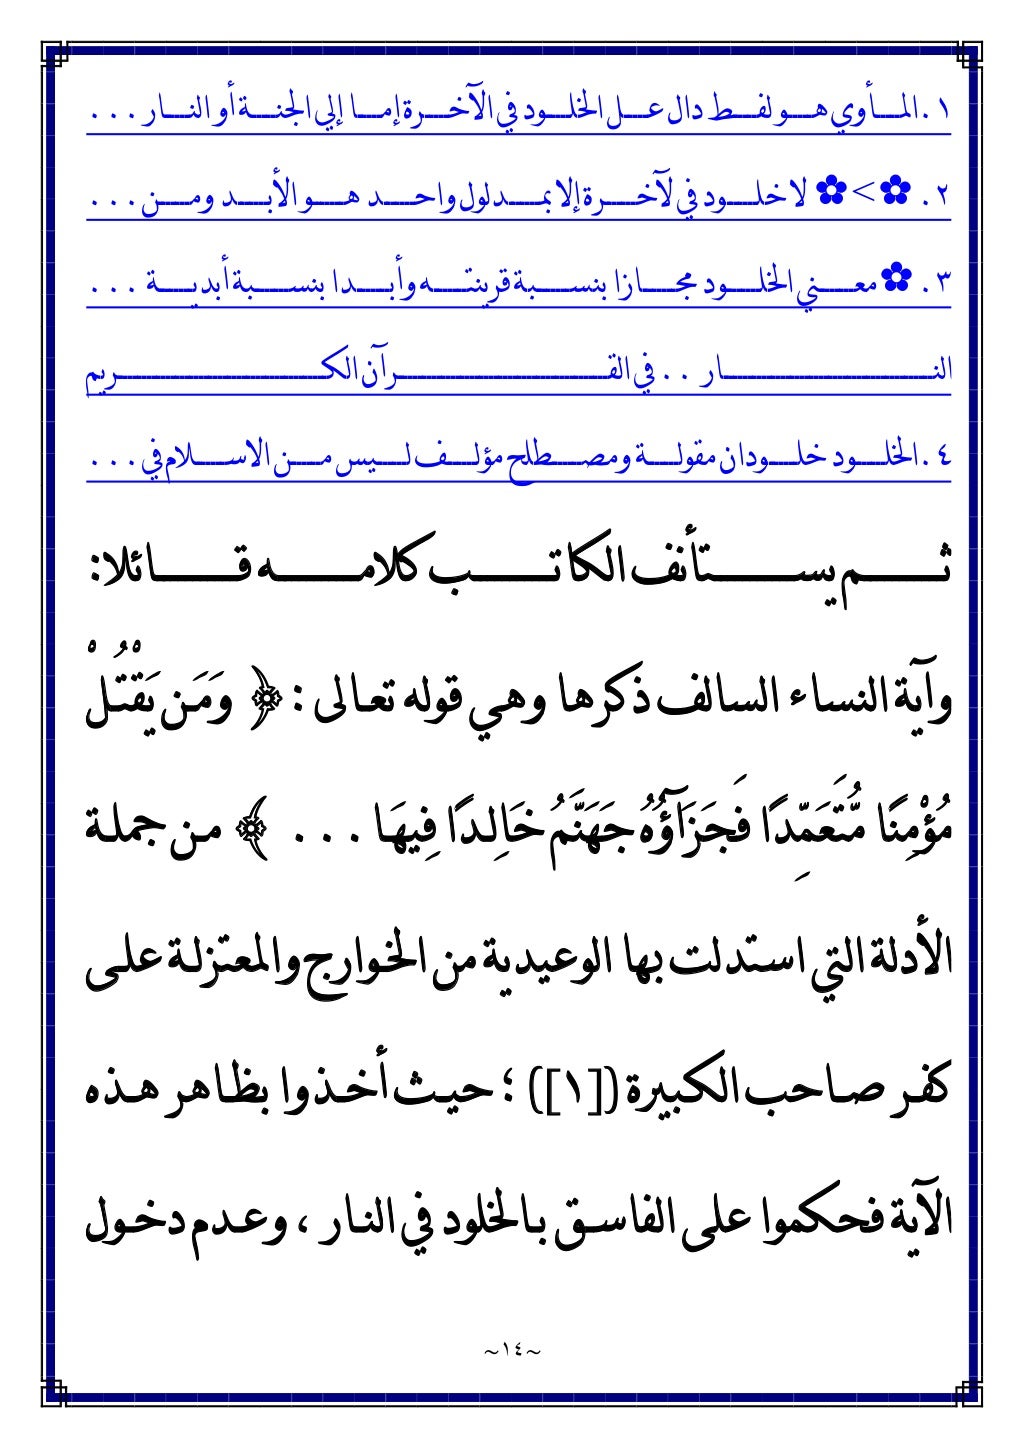 ١.المأوي هو لفط دال عل الخلود في الآخرة إما إلي الجنة أو النار ...
٢. ✿>✿ لا خلود في لآخرة إلا بمدلول واحد هو الأبد ومن ...
٣. ✿معني الخلود مجازا بنسبة قرينته وأبدا بنسبة أبدية ...
النار .. في القرآن الكريم
٤.الخلود خلودان مقولة ومصطلح مؤلف ليس من الاسلام في ...
ثم يستأنف الكاتب كلامه قائلا:
وآية النساء السالف ذكرها وهي قوله تعالى : ﴿ وَمَن يَقْتُلْ
مُؤْمِنًا مُّتَعَمِّدًا فَجَزَآؤُهُ جَهَنَّمُ خَالِدًا فِيهَا ... ﴾ من جملة
الأدلة التي استدلت بها الوعيدية من الخوارج والمعتزلة على
كفر صاحب الكبيرة ([١]) ؛ حيث أخذوا بظاهر هذه
الآية فحكموا على الفاسق بالخلود في النار ، وعدم دخول
~١٤~